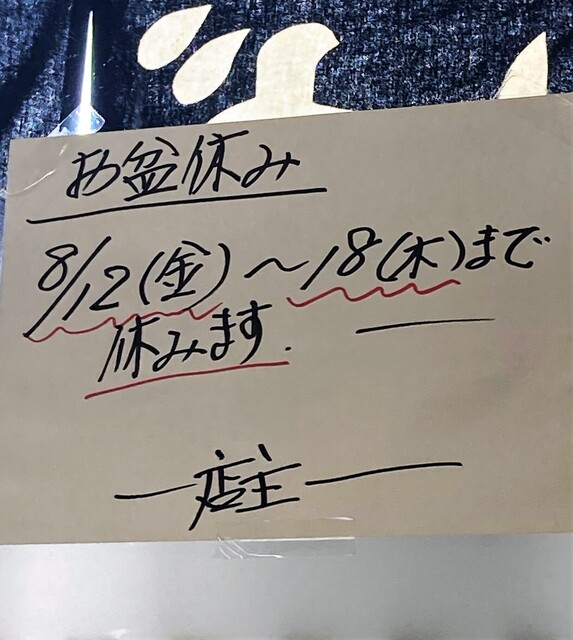 お盆休み
8/12(金)～18(木)まで
休みます.
―店主―